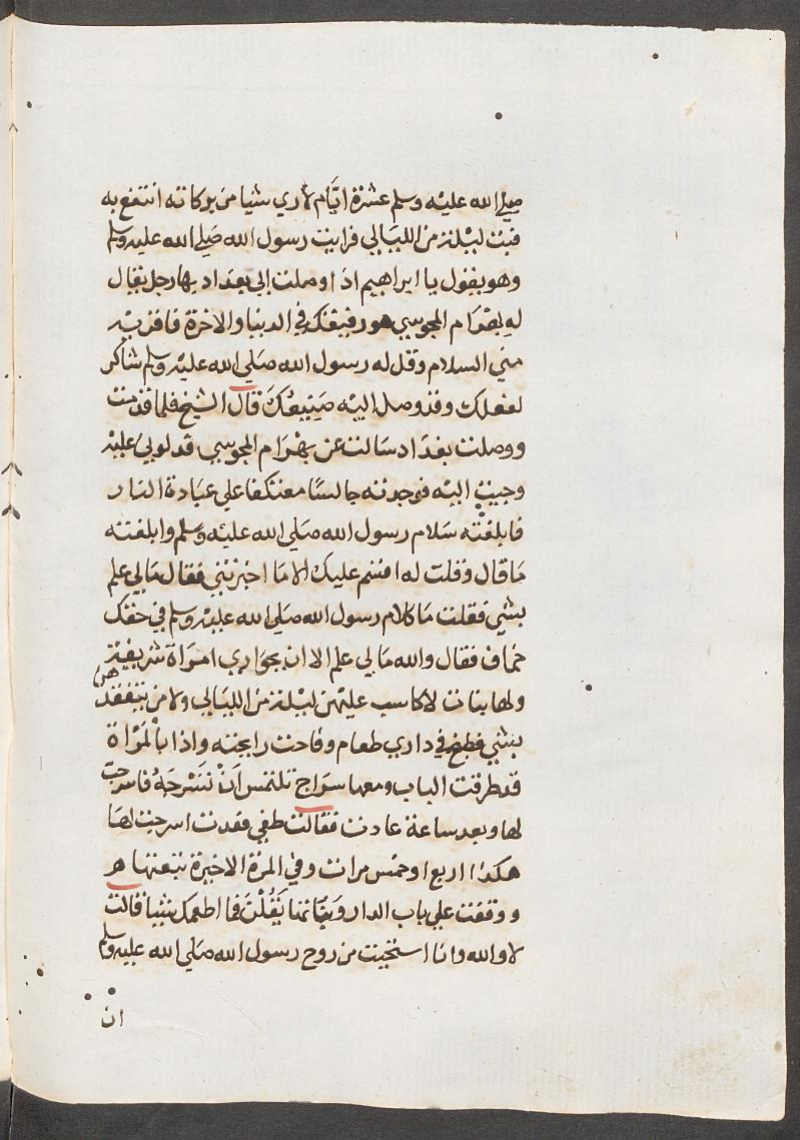 صلي الله عليه وسلم عشرة ايام لاري شيا من بركاته انتفع به
فبت ليلة من الليالي فرايت رسول الله صلي الله عليه وسلم
وهو يقول يا ابراهيم اذا وصلت الي بغداد بها رجل يقال
له بهرام المجوسي هو رفيقك في الدنيا والاخرة فاقريه
مني السلام وقل له رسول الله صلي الله عليه وسلم شاكر
لفعلك وقد وصل اليه صنيعك قال الشيخ فلما قدمت
ووصلت بغداد سالت عن بهرام المجوسي فدلوني عليه
وجيت اليه فوجدته جالسا معتكفا علي عبادة النار
فابلغته سلام رسول الله صلي الله عليه وسلم وابلغته
ما قال وقلت له اقسم عليك الا ما اخبرتني فقال مالي علم
بشي فقلت ما كلام رسول الله صلي الله عليه وسلم في حقك
خاف فقال والله مالي علم الا ان بجواري امراة شريفة
ولها بنات لا كاسب عليهن ليلة من الليالي ولا من يتفقدهن
بشي فطبخ في داري طعام وفاحت رايحته واذا بالمراة
قد طرقت الباب ومعها سراج تلتمس ان نسرجه فاسرجت
لها وبعد ساعة عادت فقالت طفي فقدت اسرجت لها
هكذا اربعا وخمس مرات وفي المرة الاخيرة تبعتها
ووقفت علي باب الدار وبناتها يقلن فما اطعمك شيا قالت
لا والله وانا استحيت من روح رسول الله صلي الله عليه وسلم
ان